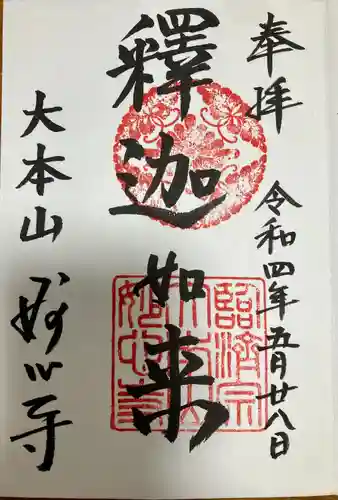 奉拝
令和四年五月廿八日
釋迦如来
大本山
妙心寺
臨済宗